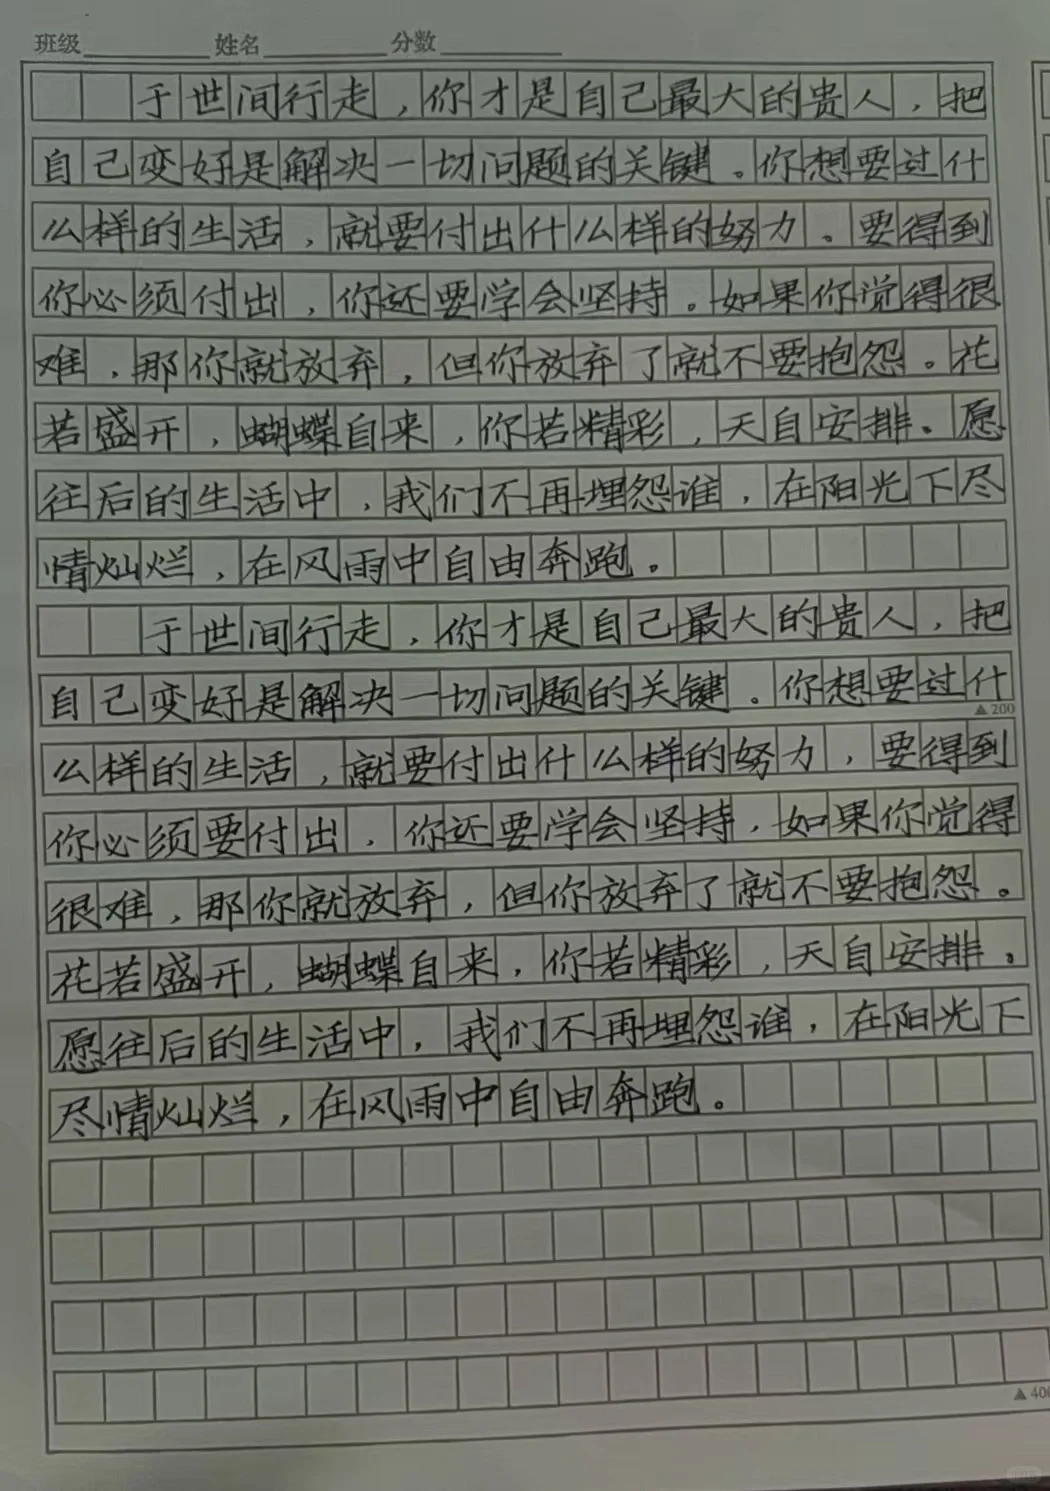 班级 姓名 分数
于世间行走，你才是自己最大的贵人，把
自己变好是解决一切问题的关键。你想要过什
么样的生活，就要付出什么样的努力。要得到
你必须付出，你还要学会坚持。如果你觉得很
难，那你就放弃，但你放弃了就不要抱怨。花
若盛开，蝴蝶自来，你若精彩，天自安排。愿
往后的生活中，我们不再埋怨谁，在阳光下尽
情灿烂，在风雨中自由奔跑。
于世间行走，你才是自己最大的贵人，把
自己变好是解决一切问题的关键。你想要过什
▲200
么样的生活，就要付出什么样的努力，要得到
你必须要付出，你还要学会坚持，如果你觉得
很难，那你就放弃，但你放弃了就不要抱怨。
花若盛开，蝴蝶自来，你若精彩，天自安排。
愿往后的生活中，我们不再埋怨谁，在阳光下
尽情灿烂，在风雨中自由奔跑。
▲400